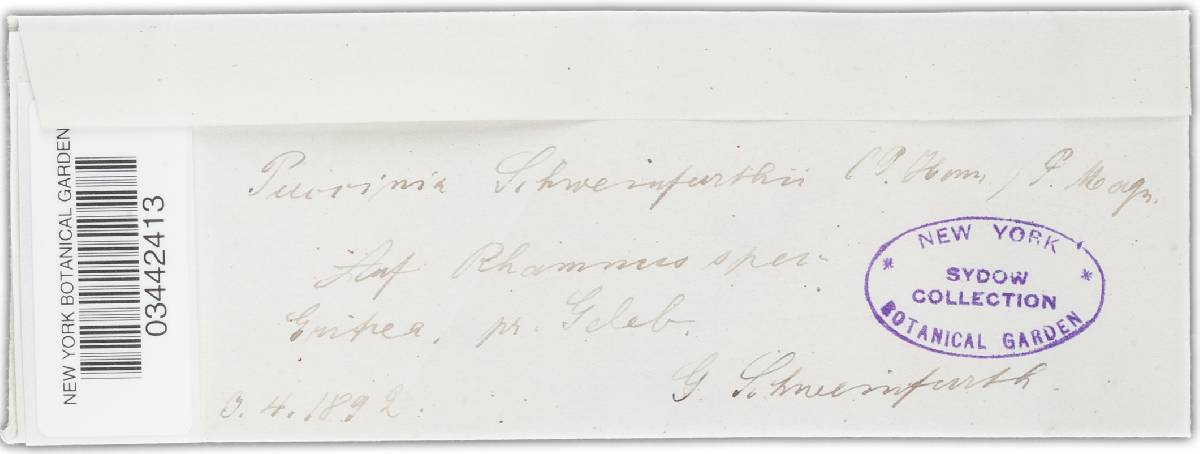 NEW YORK BOTANICAL GARDEN
03442413
Puccinia Schweinfurthii (P. Henn.) P. Magn.
Auf Rhamnus spec.
Eritrea, pr. Geleb.
G. Schweinfurth.
3.4.1892.
* NEW YORK *
SYDOW
COLLECTION
BOTANICAL GARDEN